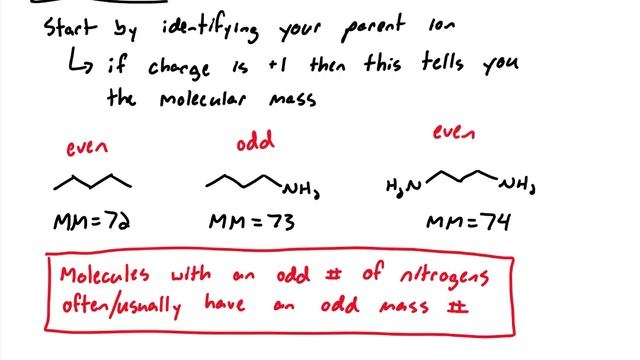 Start by identifying your parent ion
↳ if charge is +1 then this tells you
the molecular mass
even
odd
even
NH₂
H₂N
NH₂
MM=72
MM=73
MM=74
Molecules with an odd # of nitrogens
often/usually have an odd mass #